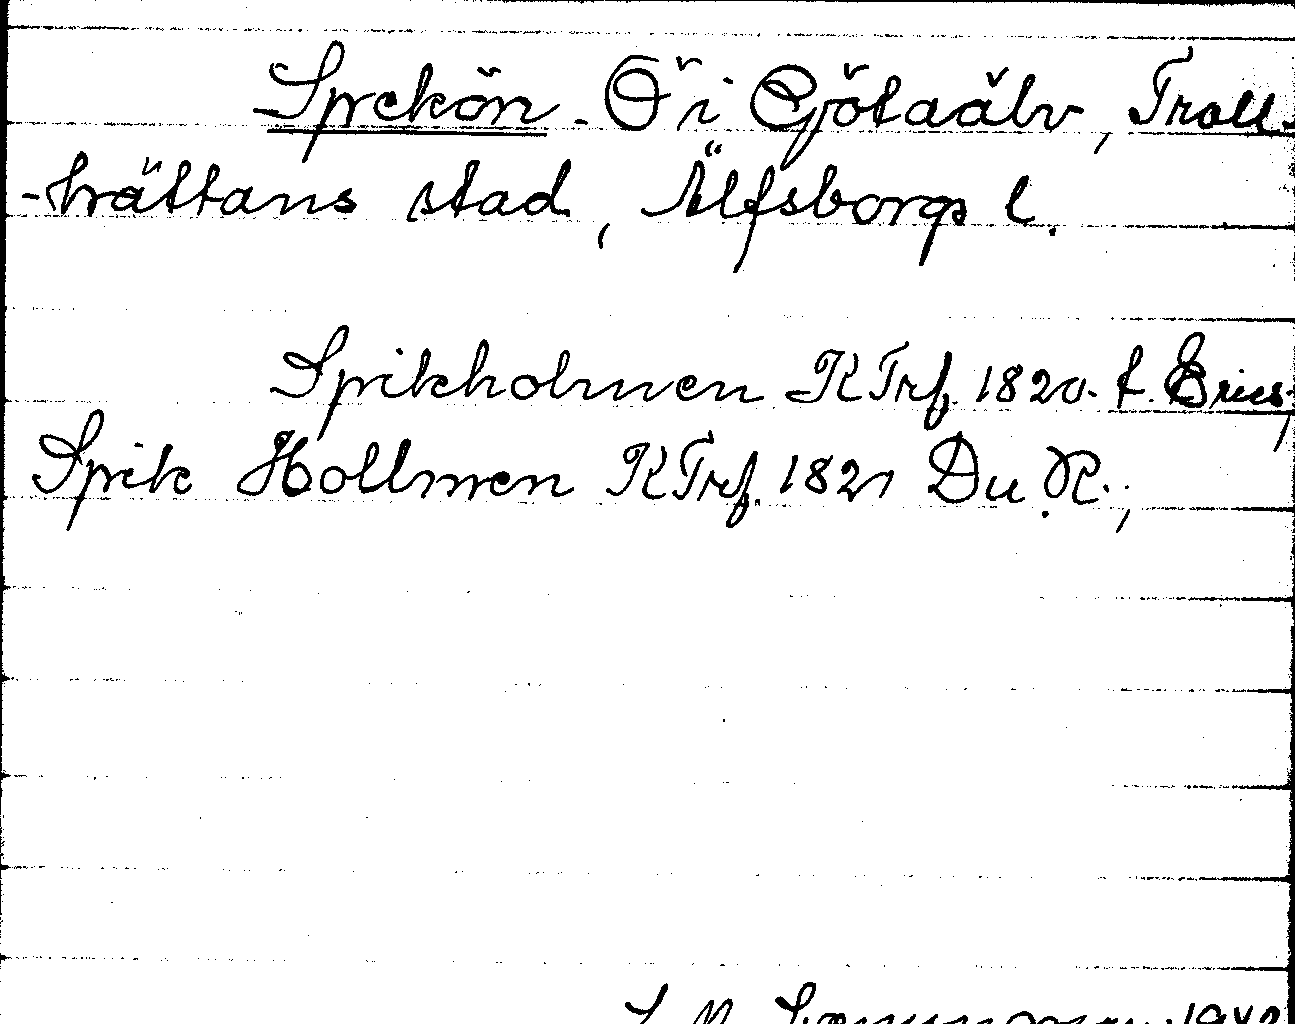 Spekön - Ö i Götaälv, Troll-
-hättans stad, Älfsborgs l.
Spikholmen KTrf. 1820. f. Erics;
Spik Hollmen KTrf. 1821 Du. R.;